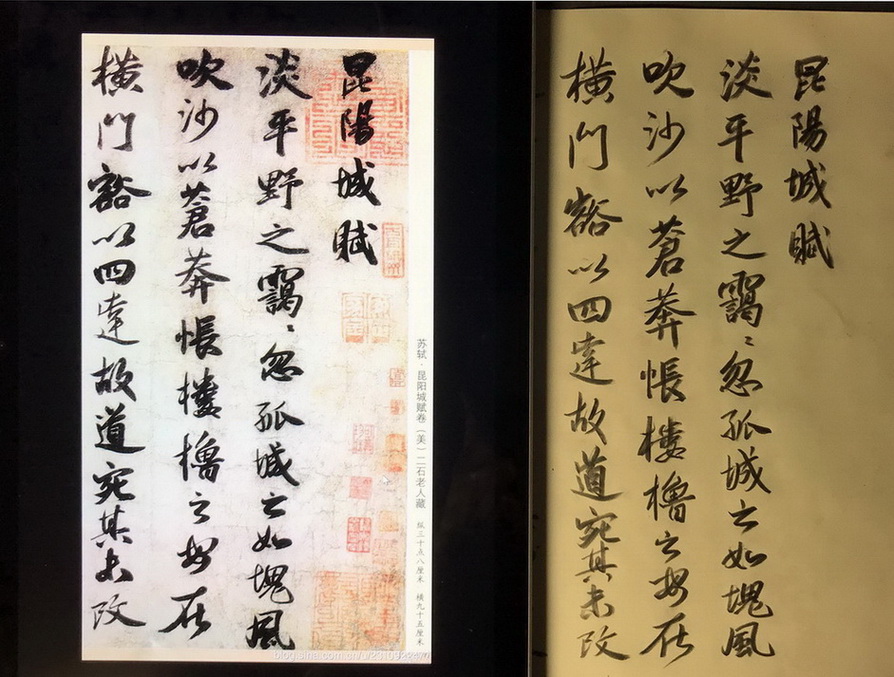 昆陽城賦
淡平野之靄〻忽孤城之如塊風
吹沙以蒼莽悵樓櫓之安在
橫門豁以四達故道宛其未改
苏轼·昆阳城赋卷（美）二石老人藏 纵三十点八厘米 横九十五厘米
blog.sina.com.cn
昆陽城賦
淡平野之靄〻忽孤城之如塊風
吹沙以蒼莽悵樓櫓之安在
橫門豁以四達故道宛其未改